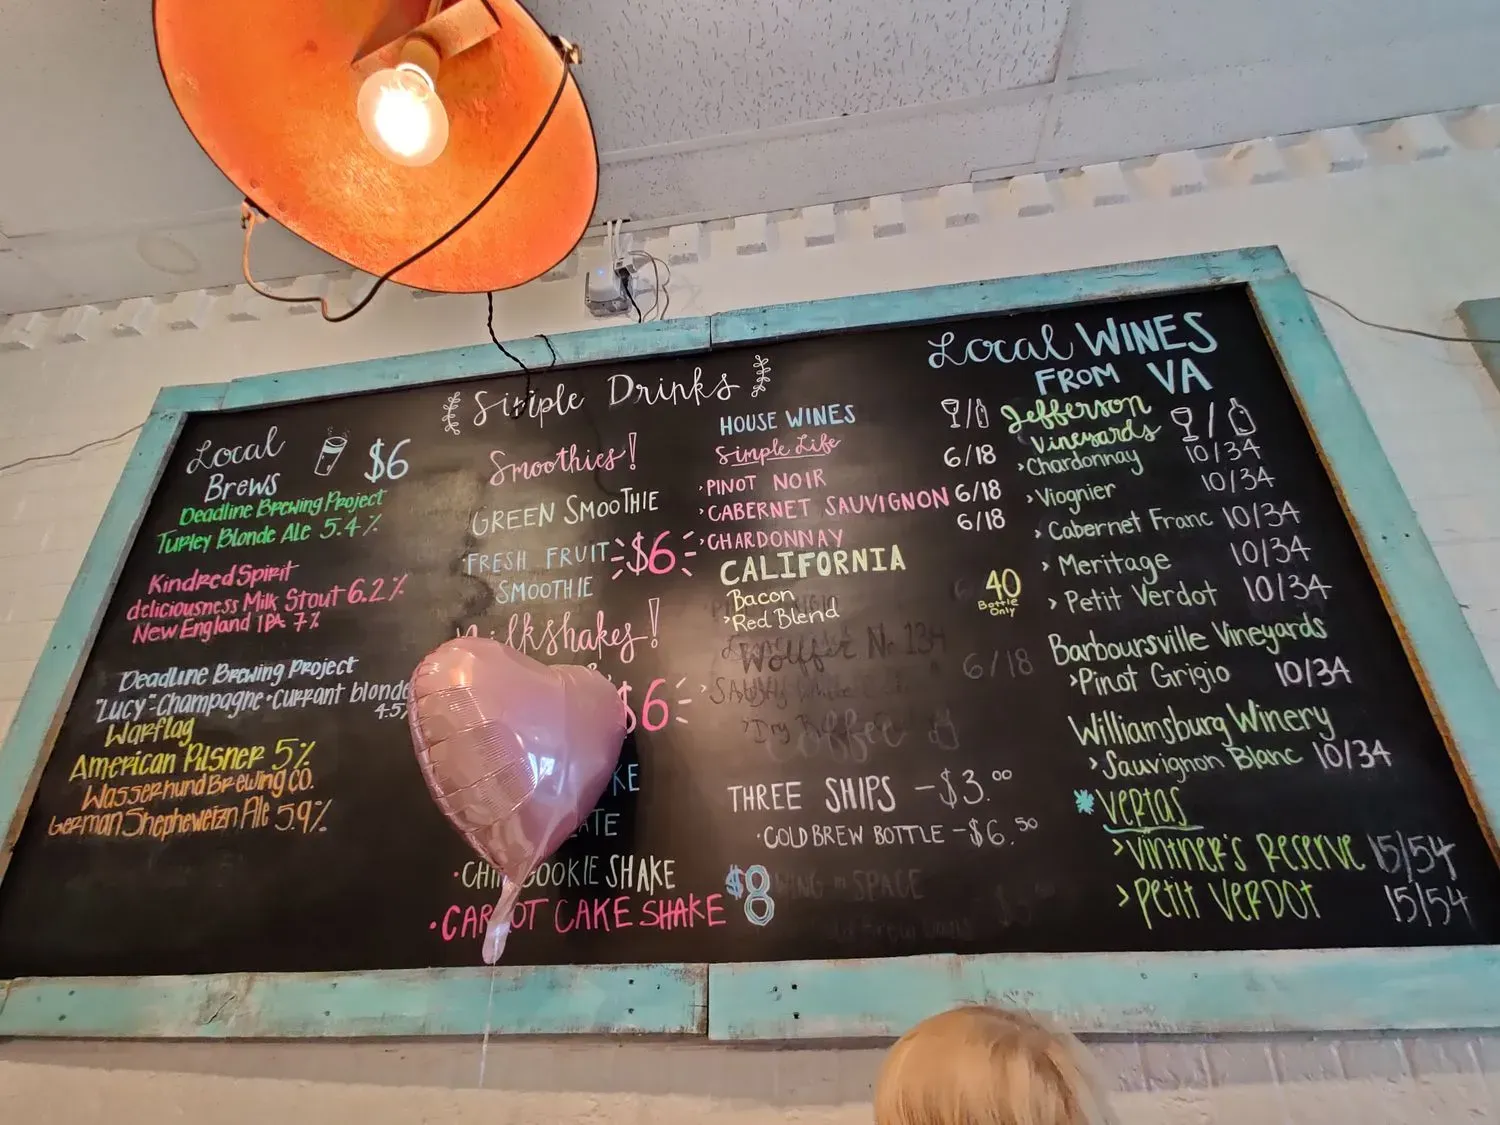 Simple Drinks
Local
Brews
$6
Deadline Brewing Project
Turkey Blonde Ale 5.4%
Kindred Spirit
deliciousness Milk Stout 6.2%
New England IPA 7%
Deadline Brewing Project
"Lucy"-Champagne+Currant blonde
Warflag
American Pilsner 5%
Wasserhund Brewing Co.
German Shepheweizn Ale 5.9%
Smoothies!
GREEN SMOOTHIE
FRESH FRUIT
SMOOTHIE
$6
$6
COOKIE SHAKE
CAKE SHAKE
$8
HOUSE WINES
Simple Life
6/18
PINOT NOIR
6/18
CABERNET SAUVIGNON
6/18
CHARDONNAY
CALIFORNIA
Bacon
Red Blend
40
Bottle
Only
Wölffer No 134
6/18
Coffee
THREE SHIPS - $3.00
COLD BREW BOTTLE - $6.50
Local WINES
FROM VA
Jefferson
Vineyards
Chardonnay 10/34
Viognier 10/34
Cabernet Franc 10/34
Meritage 10/34
Petit Verdot 10/34
Barboursville Vineyards
Pinot Grigio 10/34
Williamsburg Winery
Sauvignon Blanc 10/34
VERTAS
VINTNER'S RESERVE 15/54
PETIT VERDOT 15/54